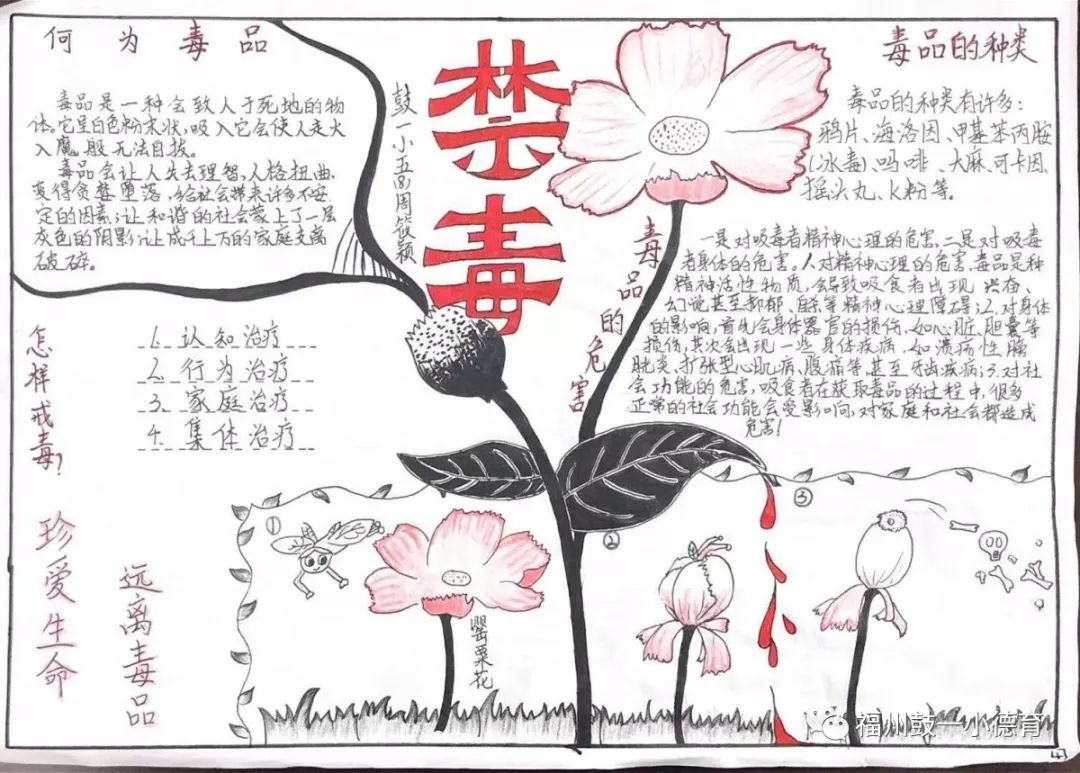 何为毒品
毒品是一种会致人于死地的物
体。它呈白色粉末状,吸入它会使人走火
入魔般无法自拔。
毒品会让人失去理智,人格扭曲,
变得贪婪堕落,给社会带来许多不安
定的因素;让和谐的社会蒙上了一层
灰色的阴影;让成千上万的家庭支离
破碎。
鼓一小五(4)周筱颖
禁毒
毒品的种类
毒品的种类有许多:
鸦片、海洛因、甲基苯丙胺
(冰毒)、吗啡、大麻、可卡因、
摇头丸、K粉等。
毒品的危害
一是对吸毒者精神心理的危害,二是对吸毒
者身体的危害。人对精神心理的危害,毒品是种
精神活性物质,会导致吸食者出现兴奋、
幻觉甚至抑郁、自杀等精神心理障碍;2.对身体
的影响,首先会身体器官的损伤,如心脏,胆囊等
损伤,其次会出现一些身体疾病,如溃疡性膀
胱炎,扩张型心肌病、腹痛等,甚至牙齿疾病;3.对社
会功能的危害,吸食者在获取毒品的过程中,很多
正常的社会功能会受影响,对家庭和社会都造成
危害!
怎样戒毒?
1. 认知治疗
2. 行为治疗
3. 家庭治疗
4. 集体治疗
珍爱生命
远离毒品
①
罂粟花
②
③
福州鼓一小德育